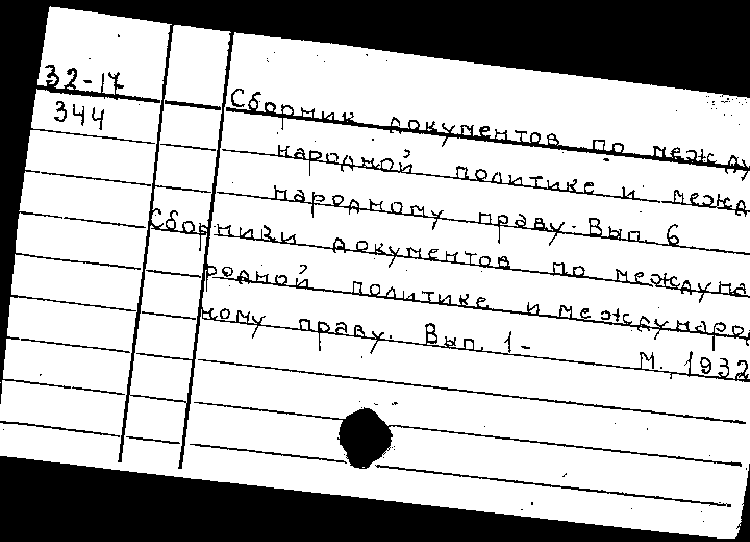 32-17
344
Сборник документов по между
народной политике и межд
народному праву. Вып. 6
Сборники документов по междуна
родной политике и международ
ному праву. Вып. 1- М., 1932